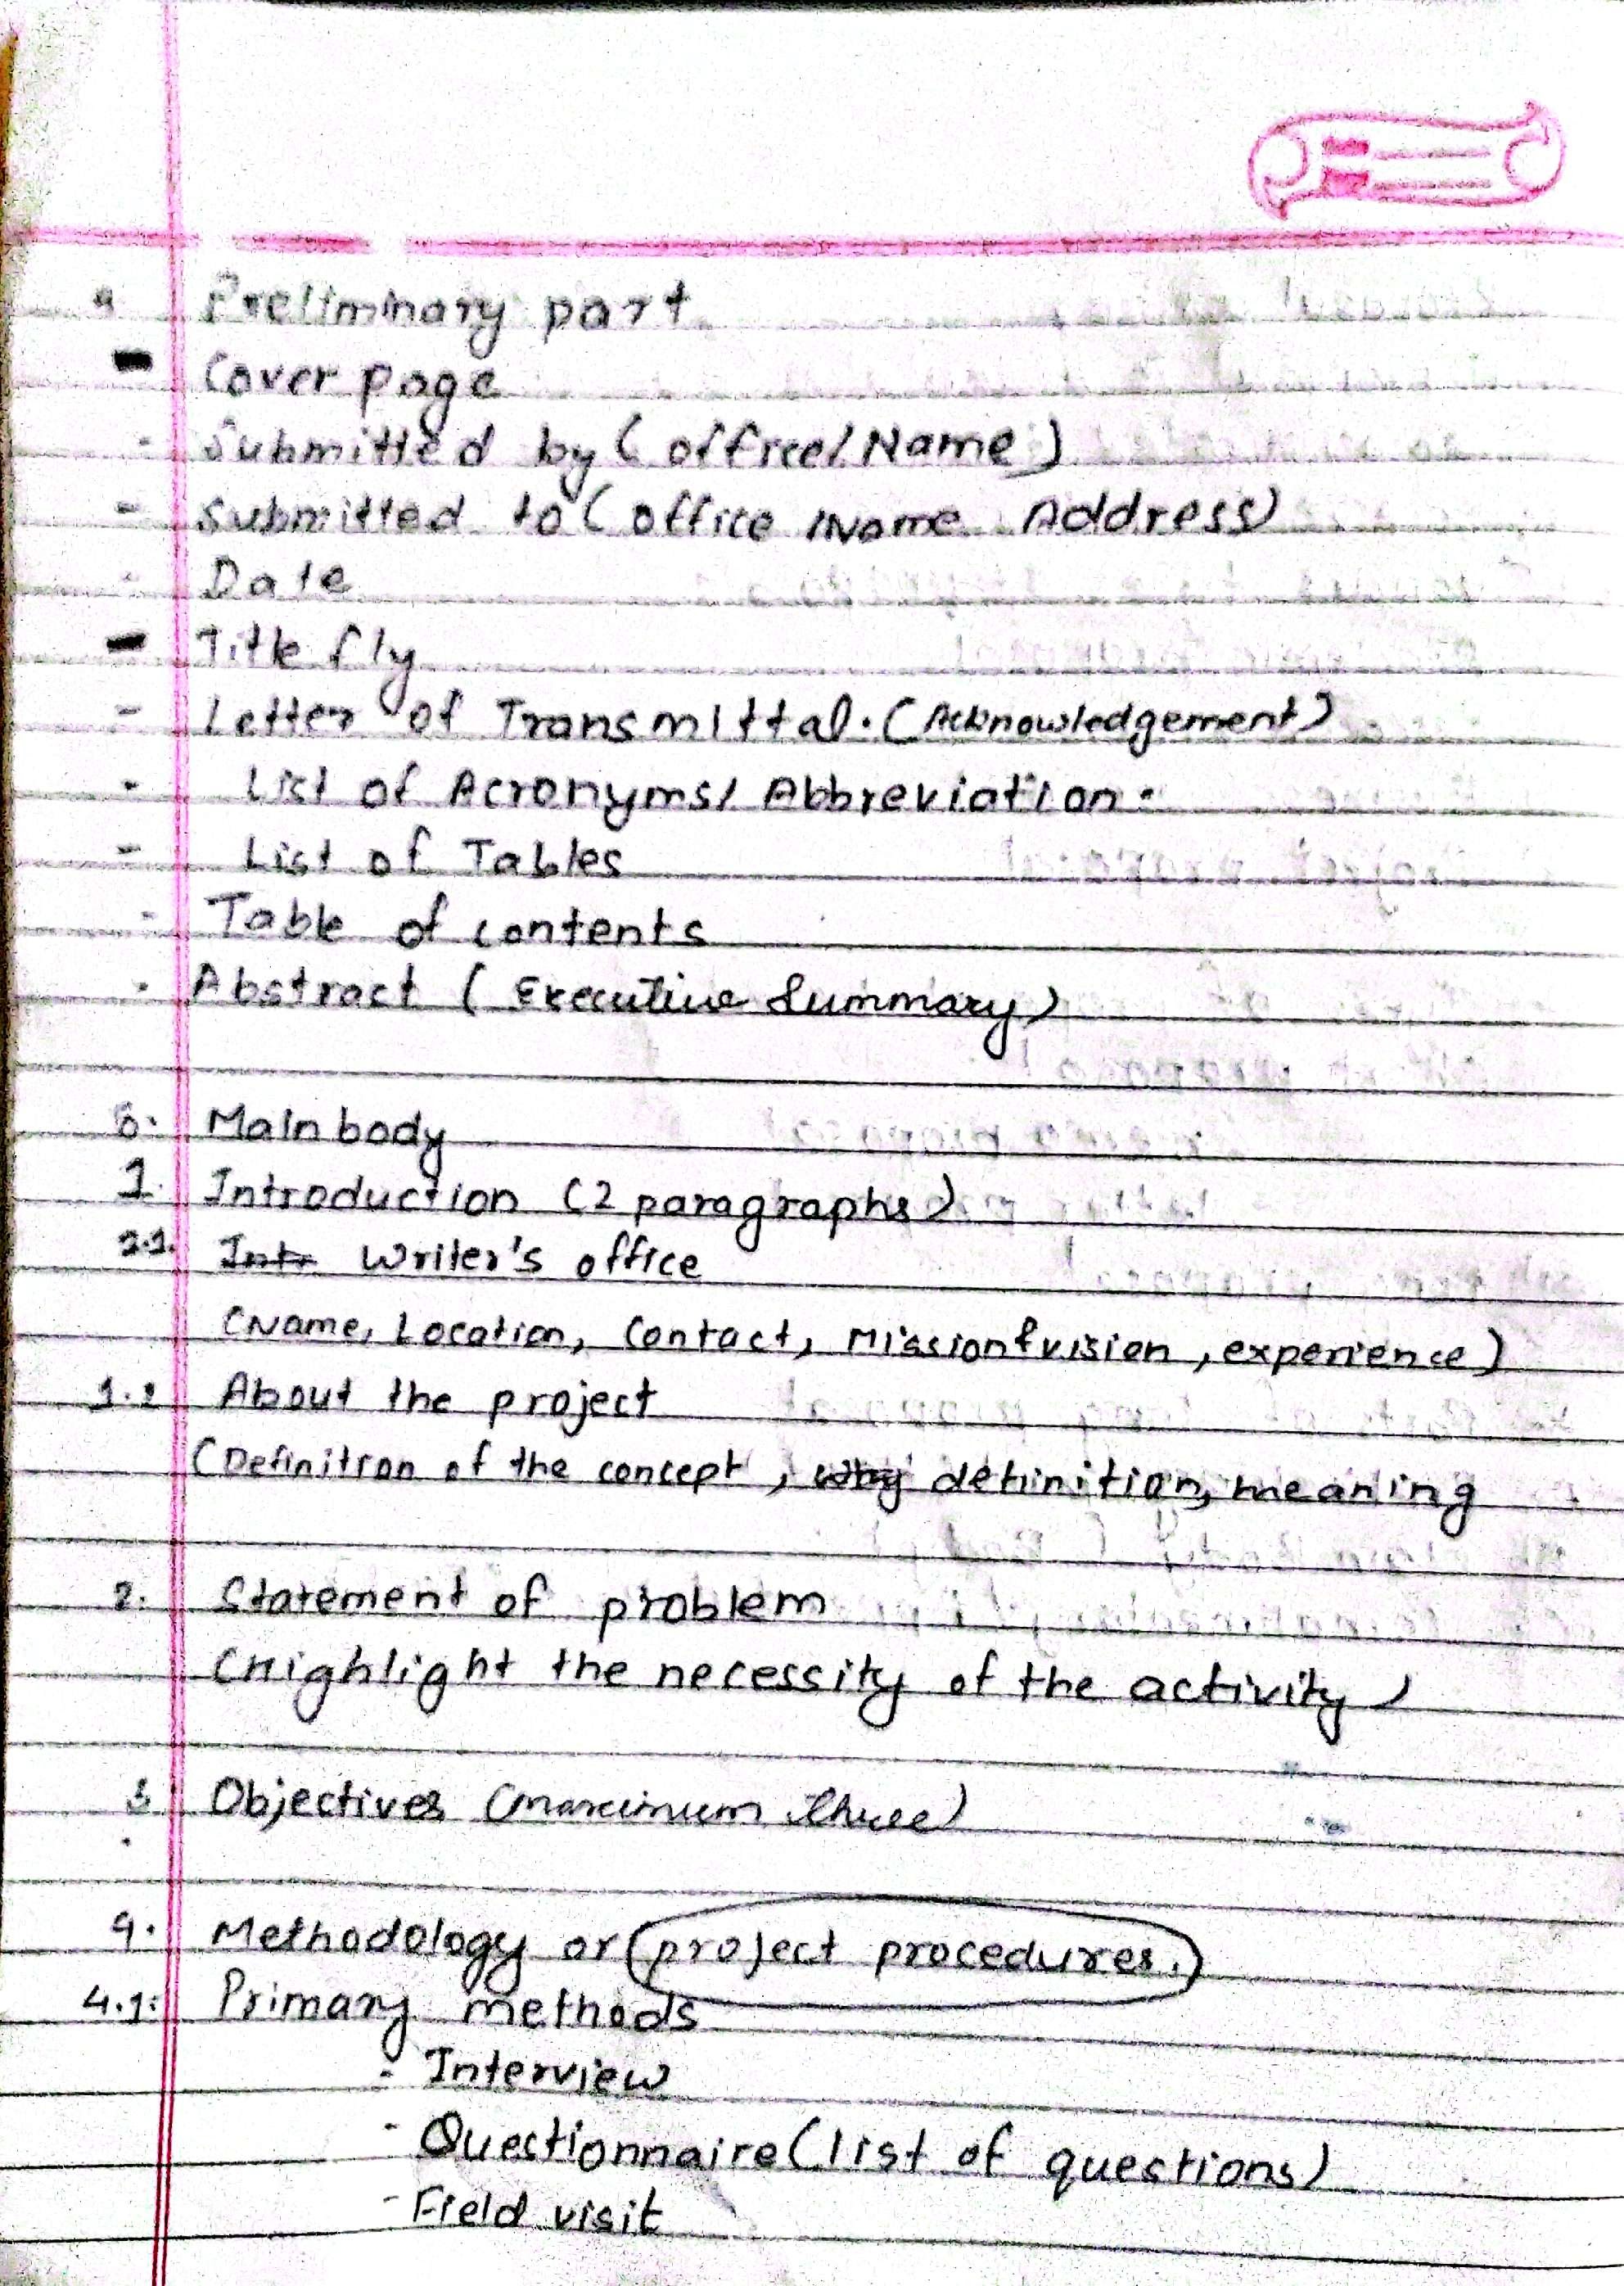 a Preliminary part
- Cover page
- Submitted by (office/Name)
- Submitted to (office Name Address)
- Date
- Title fly
- Letter of Transmittal. (Acknowledgement)
- List of Acronyms/ Abbreviation.
- List of Tables
- Table of contents
- Abstract (Executive Summary)
b. Main body
1. Introduction (2 paragraphs)
1.1. Intr Writer's office
(Name, Location, Contact, Mission & vision, experience)
1.2 About the project
(Definition of the concept, why definition, meaning
2. Statement of problem
(Highlight the necessity of the activity)
3. Objectives (maximum three)
4. Methodology or (project procedures.)
4.1: Primary methods
- Interview
- Questionnaire (list of questions)
- Field visit